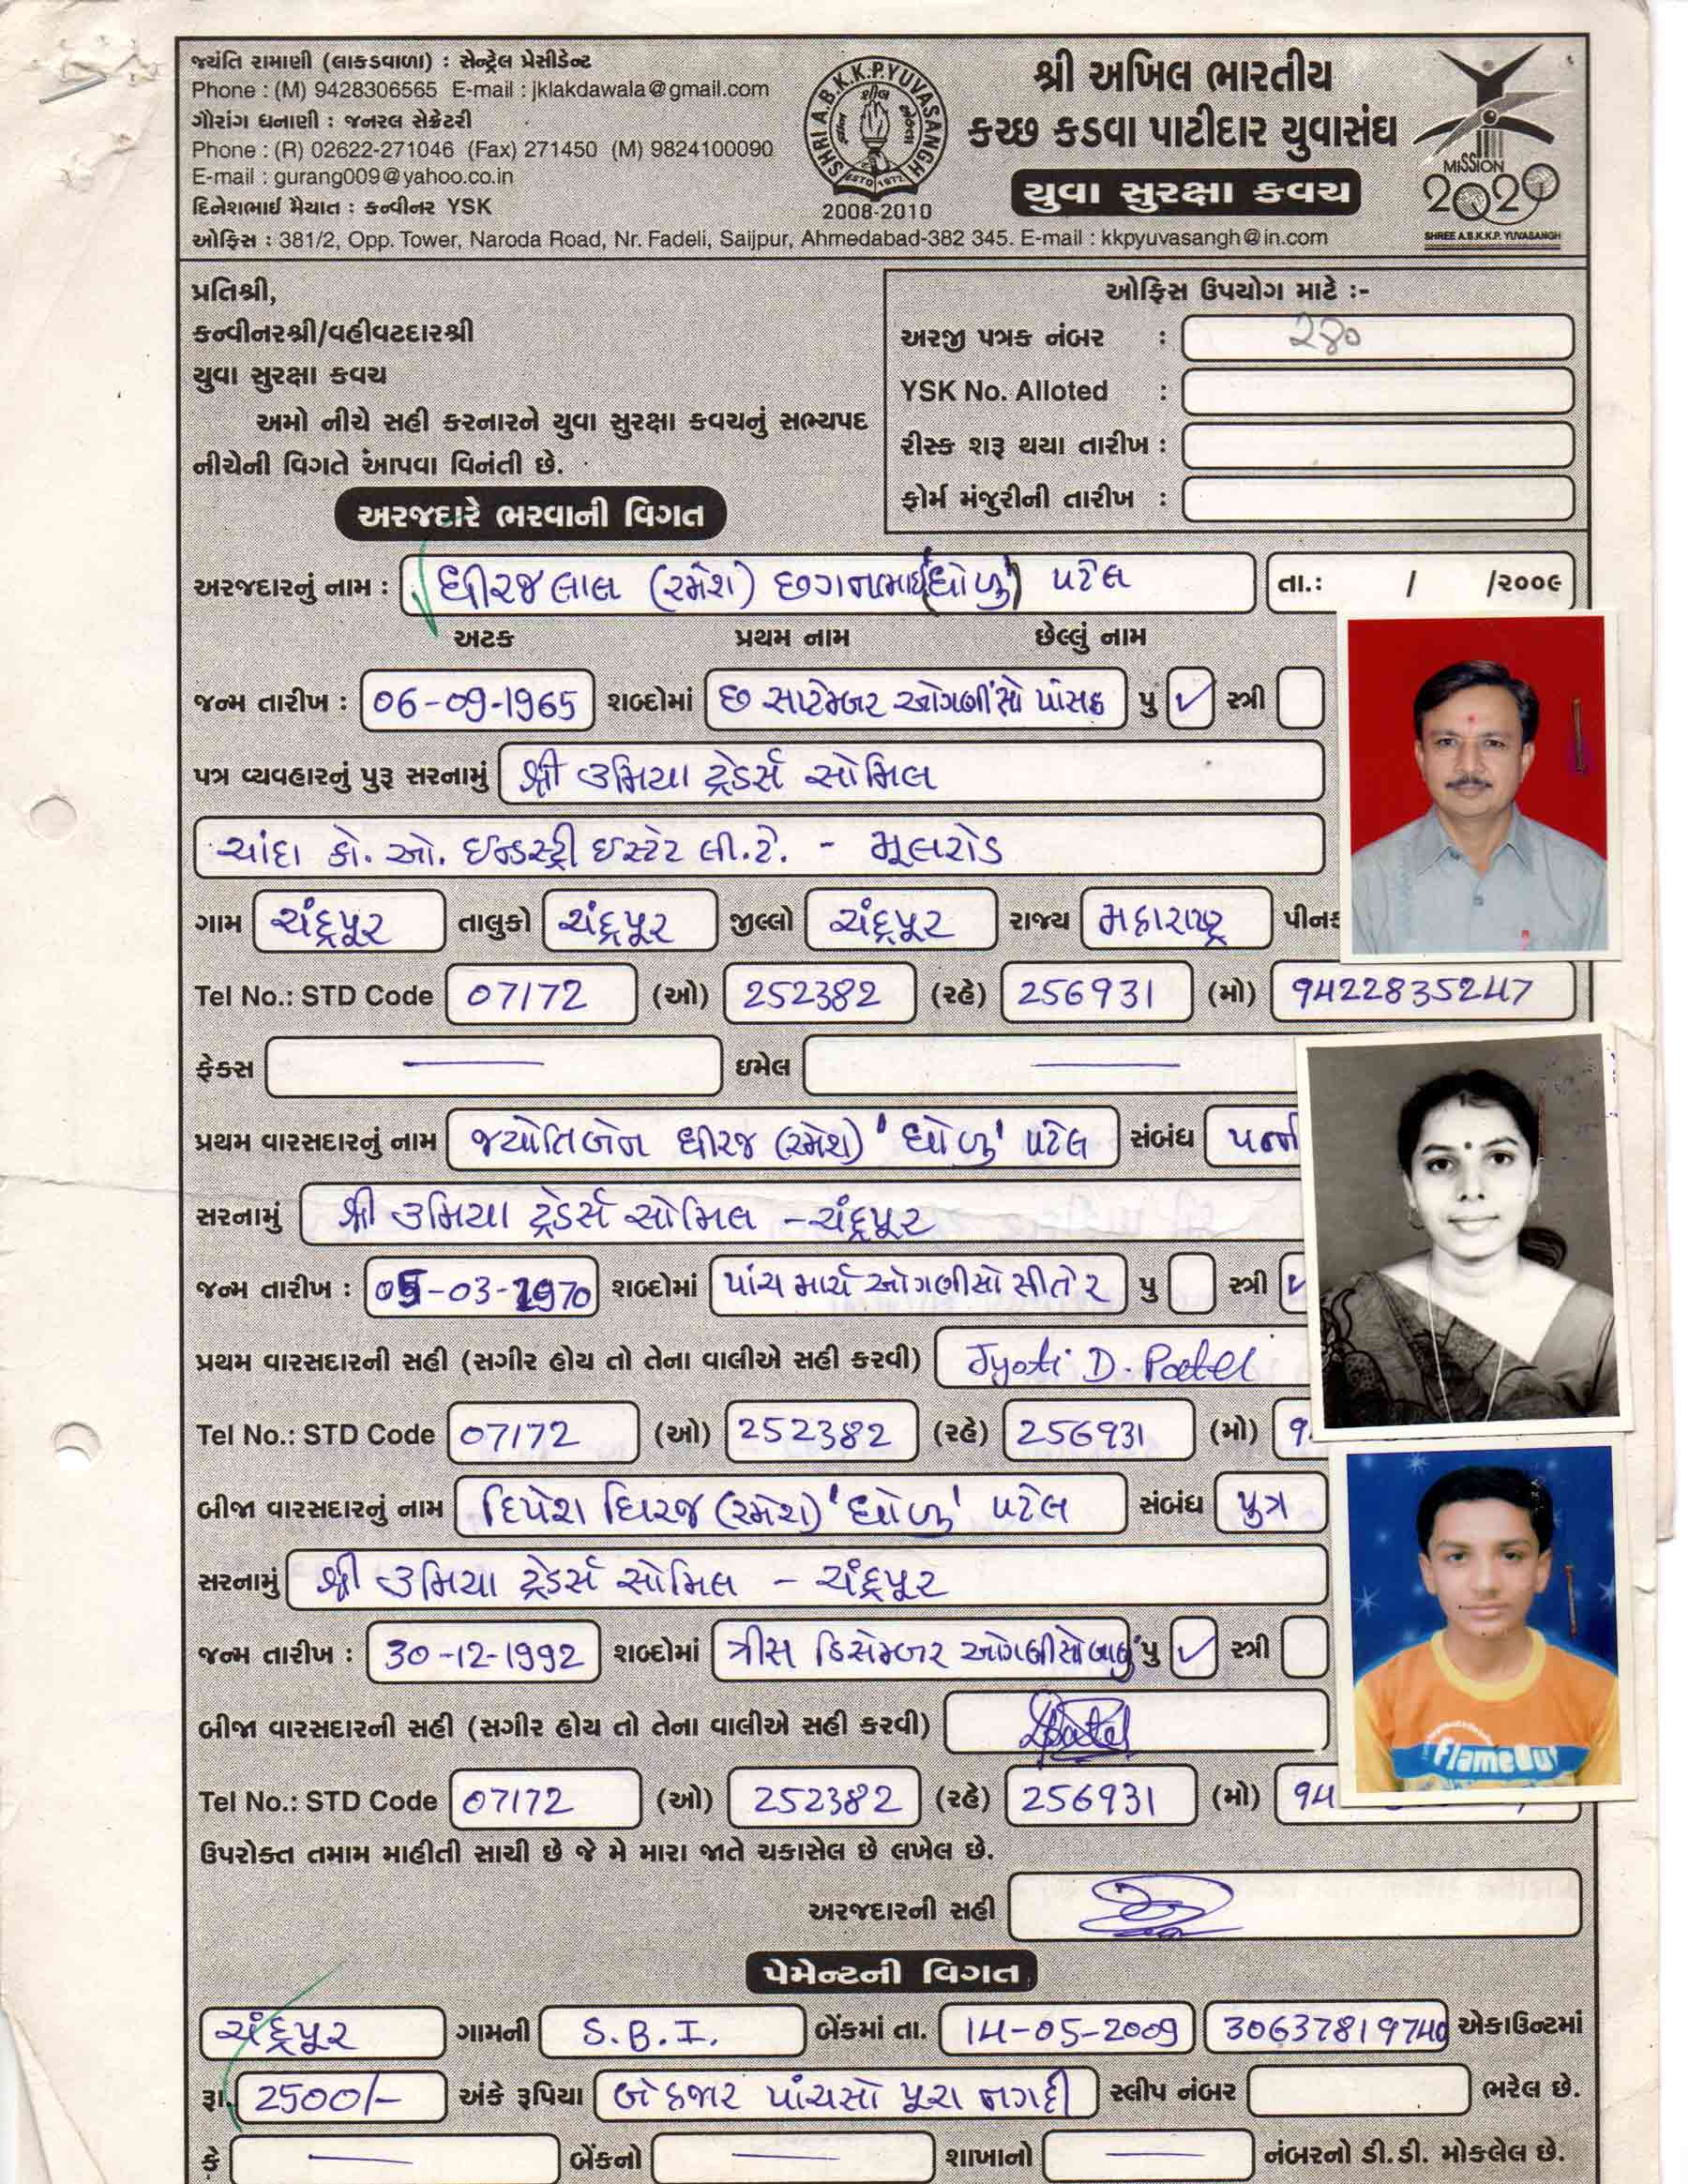 જયંતિ રામાણી (લાકડાવાળા) : સેન્ટ્રલ પ્રેસીડેન્ટ
Phone : (M) 9428306565 E-mail : jklakdawala@gmail.com
ગૌરાંગ ધનાણી : જનરલ સેક્રેટરી
Phone : (R) 02622-271046 (Fax) 271450 (M) 9824100090
E-mail : gurang009@yahoo.co.in
દિનેશભાઈ મૈયાત : કન્વીનર YSK
SHRI A.B.K.K.P. YUVASANGH
ESTD 1972
2008-2010
શ્રી અખિલ ભારતીય
કચ્છ કડવા પાટીદાર યુવાસંઘ
યુવા સુરક્ષા કવચ
MISSION
2020
SHREE A.B.K.K.P. YUVASANGH
ઓફિસ : 381/2, Opp. Tower, Naroda Road, Nr. Fadeli, Saijpur, Ahmedabad-382 345. E-mail : kkpyuvasangh@in.com
પ્રતિશ્રી,
કન્વીનરશ્રી/વહીવટદારશ્રી
યુવા સુરક્ષા કવચ
અમો નીચે સહી કરનારને યુવા સુરક્ષા કવચનું સભ્યપદ
નીચેની વિગતે આપવા વિનંતી છે.
ઓફિસ ઉપયોગ માટે :-
અરજી પત્રક નંબર : ૨૪૦
YSK No. Alloted :
રીસ્ક શરૂ થયા તારીખ :
ફોર્મ મંજુરીની તારીખ :
અરજદારે ભરવાની વિગત
અરજદારનું નામ : ધીરજલાલ (રમેશ) છગનભાઈ (ધોળુ) પટેલ તા.: / /૨૦૦૯
અટક પ્રથમ નામ છેલ્લું નામ
જન્મ તારીખ : 06-09-1965 શબ્દોમાં છ સપ્ટેમ્બર ઓગણીસો પાંસઠ પુ ✓ સ્ત્રી
પત્ર વ્યવહારનું પુરૂ સરનામું શ્રી ઉમિયા ટ્રેડર્સ સોમિલ
ચાંદા કો. ઓ. ઈન્ડસ્ટ્રી ઈસ્ટેટ લી.ટે. - મૂલરોડ
ગામ ચંદ્રપૂર તાલુકો ચંદ્રપૂર જીલ્લો ચંદ્રપૂર રાજ્ય મહારાષ્ટ્ર
Tel No.: STD Code 07172 (ઓ) 252382 (રહે) 256931 (મો) 9422835247
ફેક્સ — ઇમેલ —
પ્રથમ વારસદારનું નામ જ્યોતિબેન ધીરજ (રમેશ) 'ધોળુ' પટેલ સંબંધ
સરનામું શ્રી ઉમિયા ટ્રેડર્સ સોમિલ - ચંદ્રપૂર
જન્મ તારીખ : 05-03-1970 શબ્દોમાં પાંચ માર્ચ ઓગણીસો સીતેર પુ સ્ત્રી ✓
પ્રથમ વારસદારની સહી (સગીર હોય તો તેના વાલીએ સહી કરવી) Jyoti D. Patel
Tel No.: STD Code 07172 (ઓ) 252382 (રહે) 256931 (મો) 9
બીજા વારસદારનું નામ દિપેશ ધિરજ (રમેશ) 'ધોળુ' પટેલ સંબંધ પુત્ર
સરનામું શ્રી ઉમિયા ટ્રેડર્સ સોમિલ - ચંદ્રપૂર
જન્મ તારીખ : 30-12-1992 શબ્દોમાં ત્રીસ ડિસેમ્બર ઓગણીસો બાણું પુ ✓ સ્ત્રી
FlameOut
બીજા વારસદારની સહી (સગીર હોય તો તેના વાલીએ સહી કરવી)
Tel No.: STD Code 07172 (ઓ) 252382 (રહે) 256931 (મો) 94
ઉપરોક્ત તમામ માહીતી સાચી છે જે મે મારા જાતે ચકાસેલ છે લખેલ છે.
અરજદારની સહી
પેમેન્ટની વિગત
ચંદ્રપૂર ગામની S.B.I. બેંકમાં તા. 14-05-2009 30637819740 એકાઉન્ટમાં
રૂા. 2500/- અંકે રૂપિયા બે હજાર પાંચસો પૂરા નગદી સ્લીપ નંબર ભરેલ છે.
કે — બેંકનો — શાખાનો — નંબરનો ડી.ડી. મોકલેલ છે.